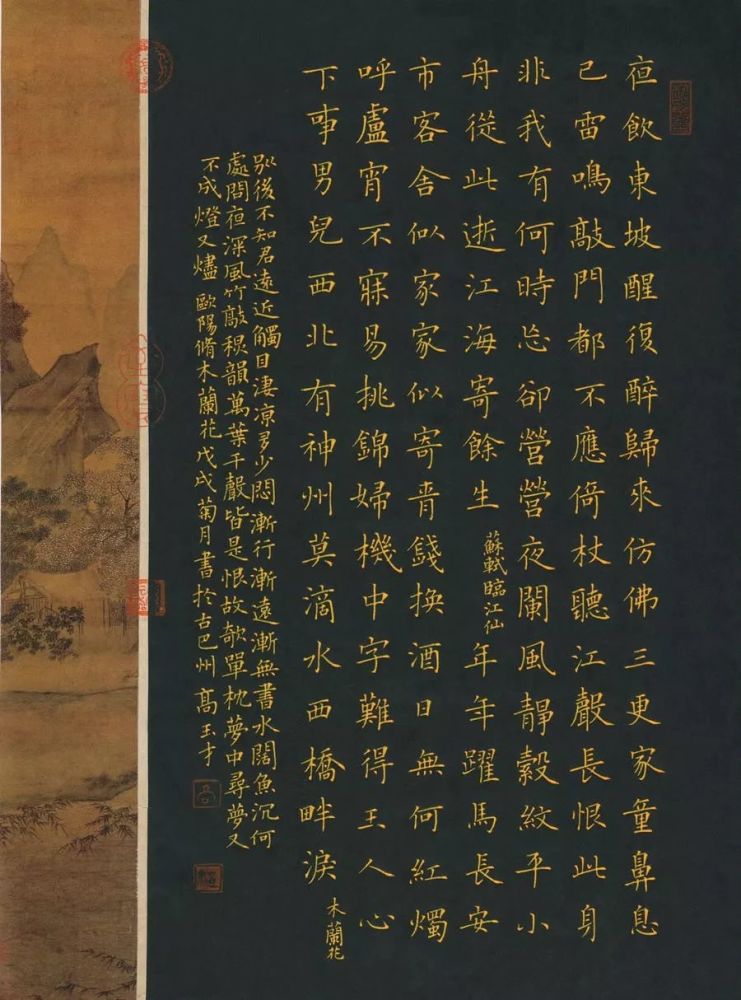 夜飲東坡醒復醉歸來仿佛三更家童鼻息
已雷鳴敲門都不應倚杖聽江聲長恨此身
非我有何時忘卻營營夜闌風靜縠紋平小
舟從此逝江海寄餘生
蘇軾臨江仙
年年躍馬長安
市客舍似家家似寄青錢換酒日無何紅燭
呼盧宵不寐易挑錦婦機中字難得玉人心
下事男兒西北有神州莫滴水西橋畔淚
木蘭花
別後不知君遠近觸目淒凉多少悶漸行漸遠漸無書水闊魚沉何
處問夜深風竹敲秋韻萬葉千聲皆是恨故欹單枕夢中尋夢又
不成燈又燼 歐陽脩木蘭花戊戌菊月書於古巴州高玉才